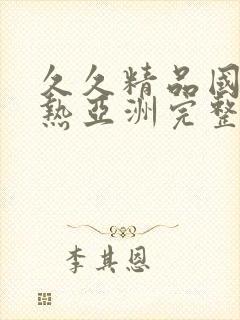 久久精品國
熱亞洲完整
李其恩